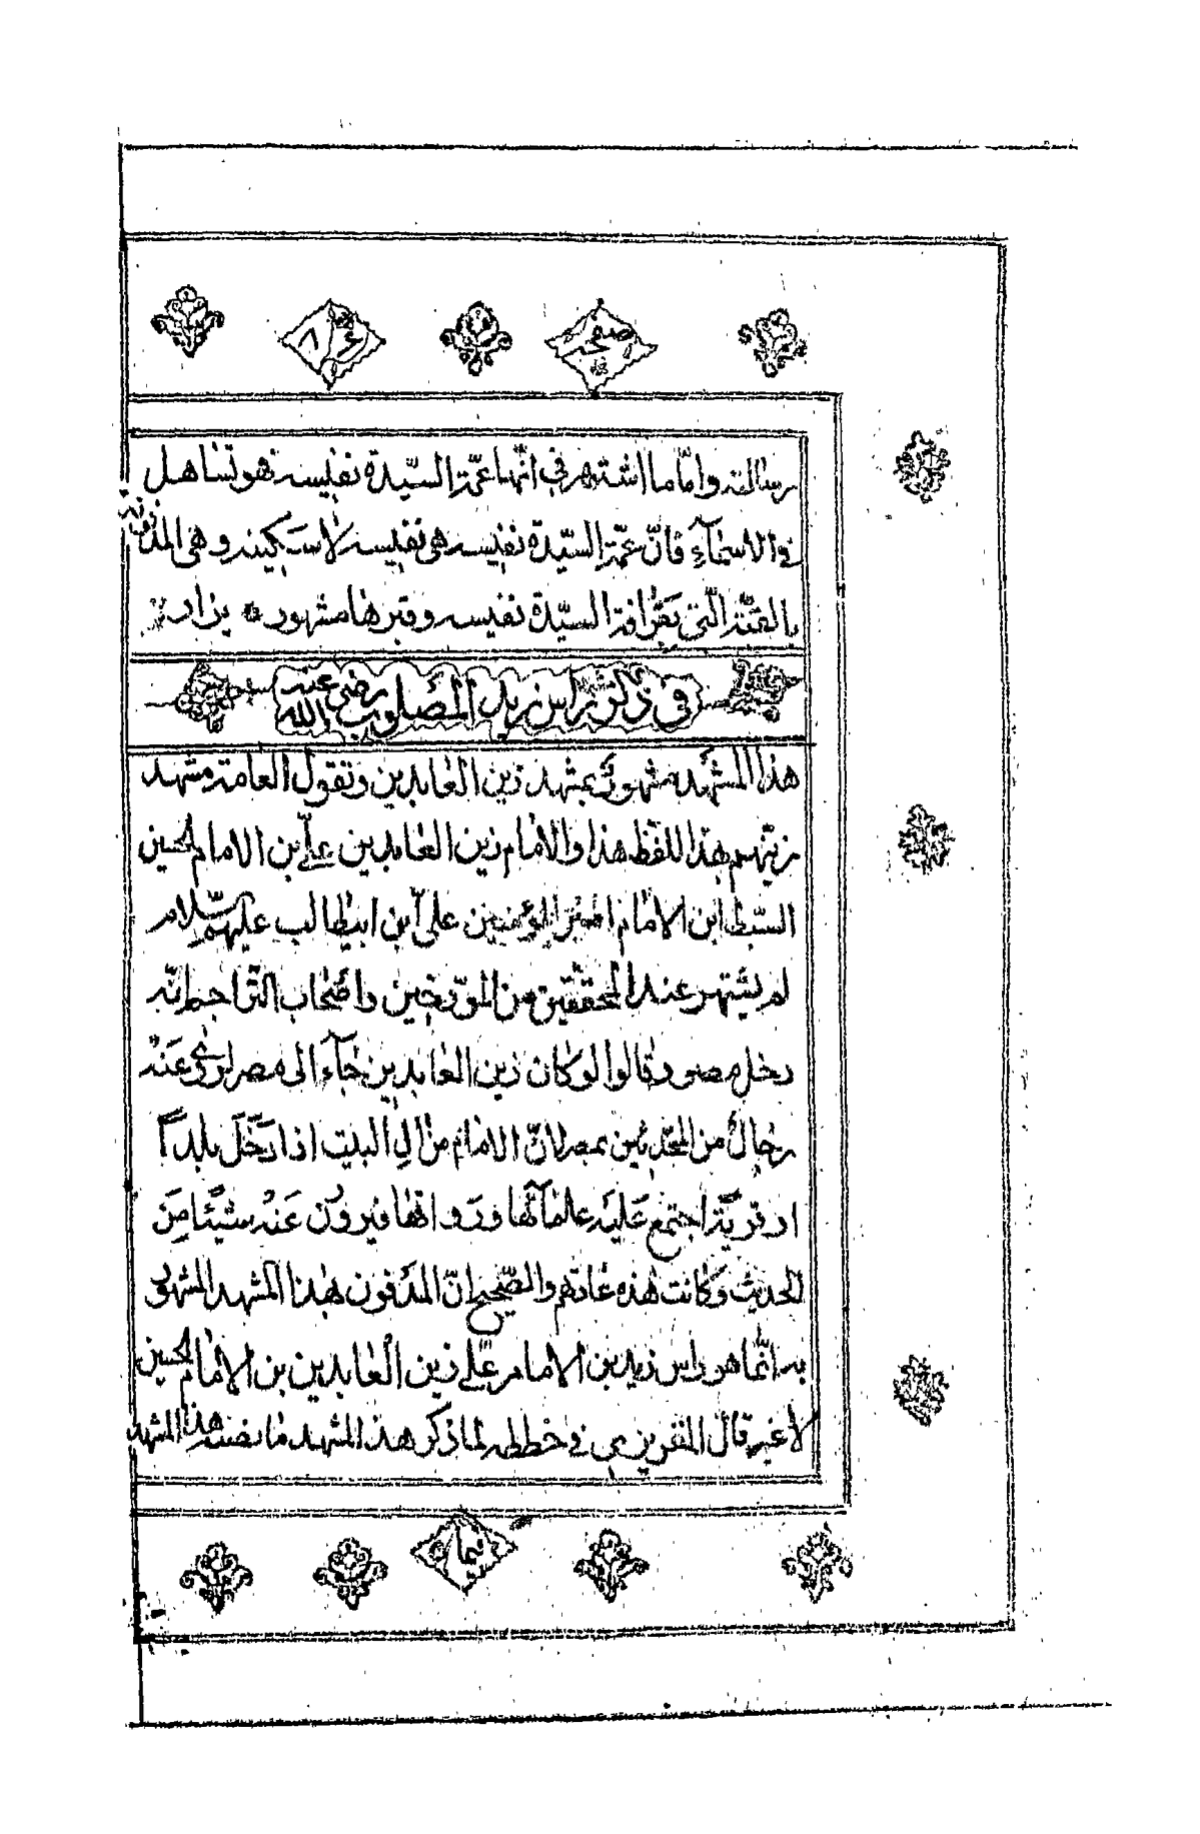 صفحه
رسالته واما ما اشتهر في انّها عمّة السيّدة نفيسه فهو تساهل
في الاسمآء فانّ عمّة السيّدة نفيسه هي نفيسه لا سكينه وهي المدفونة
بالقبّة الّتي بقرافة السيّدة نفيسه وقبرها مشهور يزار
في ذكر راس زيد المصلوب رضى الله عنه
هذا المشهد مشهور بمشهد زين العابدين وتقول العامة مشهد
زينهم بهذا اللفظ هذا والامام زين العابدين علىّ بن الامام الحسين
السّبط ابن الامام امير المؤمنين علىّ ابن ابيطالب عليهم السّلام
لم يشتهر عند المحققين من المورّخين واصحاب التراجم انّه
دخل مصر وقالوا لو كان زين العابدين جآء الى مصر لروى عنه
رجال من المحدّثين بمصر لانّ الامام من ال البيت اذا دخل بلداً
او قرية اجتمع عليه علمآئها ورواتها فيروون عنه شيئا من
الحديث وكانت هذه عادتهم والصّحيح انّ المدفون بهذا المشهد المشهور
به انّما هو راس زيد بن الامام علي زين العابدين بن الامام الحسين
لا غير قال المقريزي في خططه لما ذكر هذ المشهد ما نصّه هذا المشهد